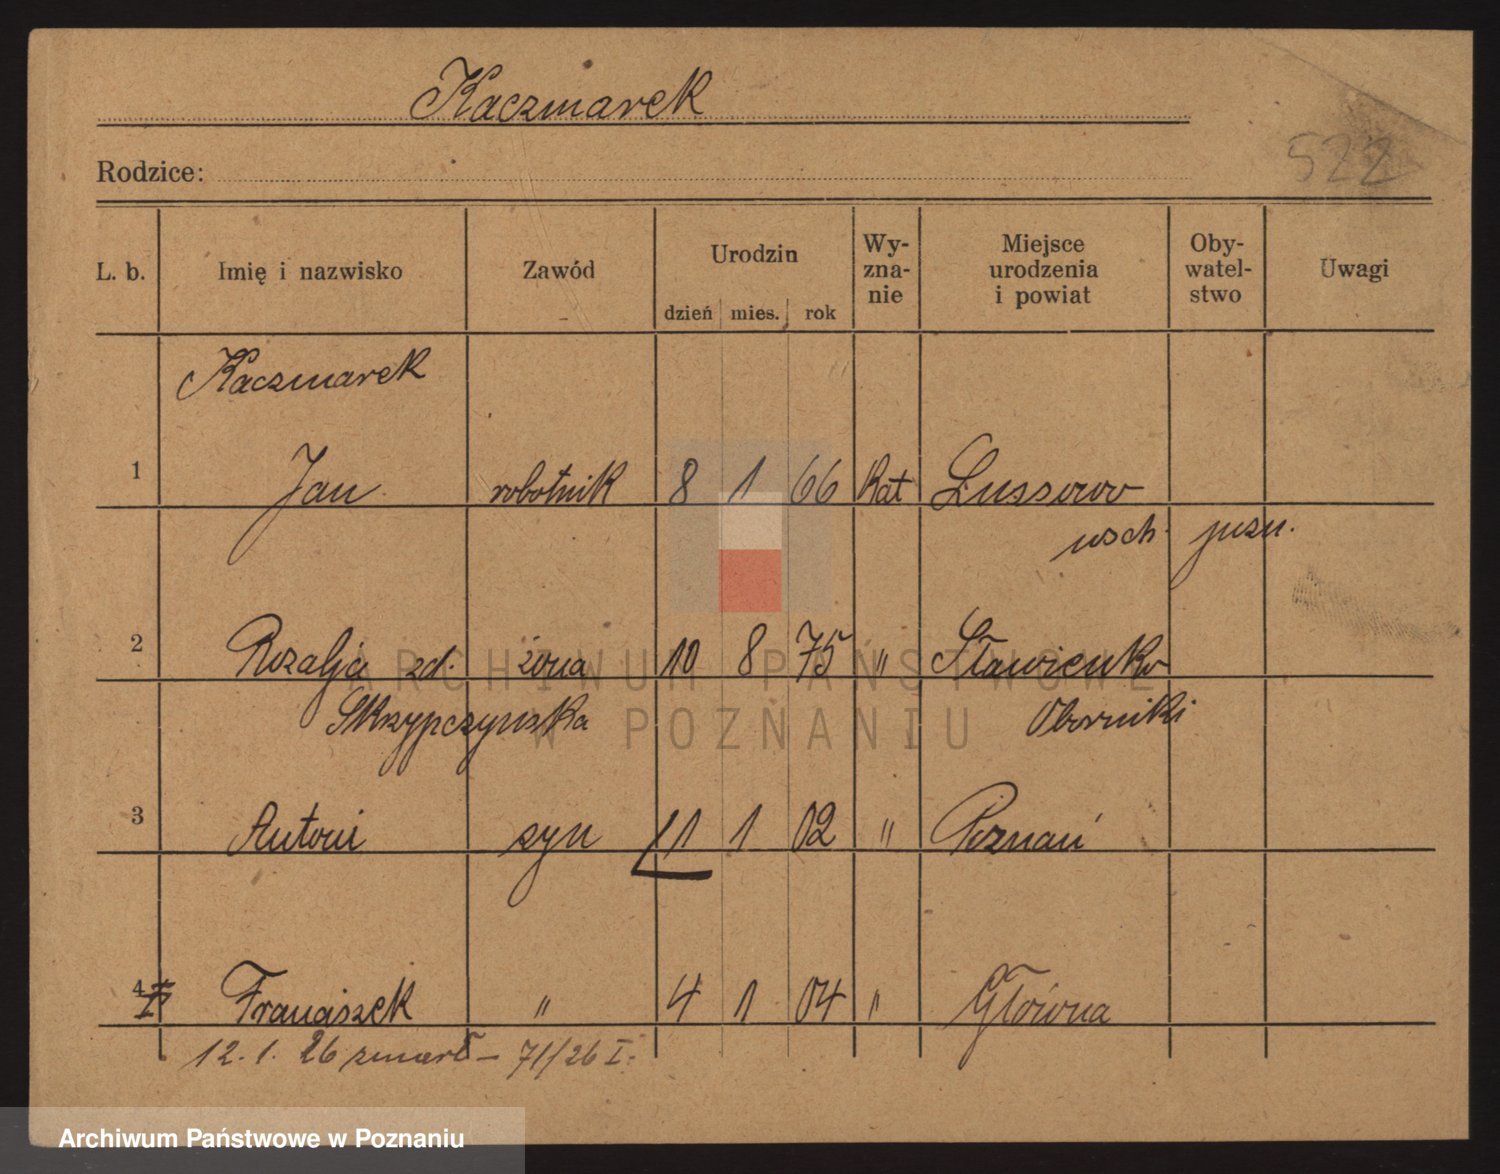 Kaczmarek
522
Rodzice:
L. b. Imię i nazwisko Zawód Urodzin dzień mies. rok Wy-zna-nie Miejsce urodzenia i powiat Oby-watel-stwo Uwagi
Kaczmarek
1 Jan robotnik 8 1 66 kat Lussowo
wsch. pozn.
2 Rozalja zd. żona 10 8 75 " Sławienko
Skrzypczyńska Oborniki
3 Antoni syn 11 1 02 " Poznań
4 Franciszek " 4 1 04 " Główna
12. 1. 26 zmarł – 71/26 I.
ARCHIWUM PAŃSTWOWE
W POZNANIU
Archiwum Państwowe w Poznaniu